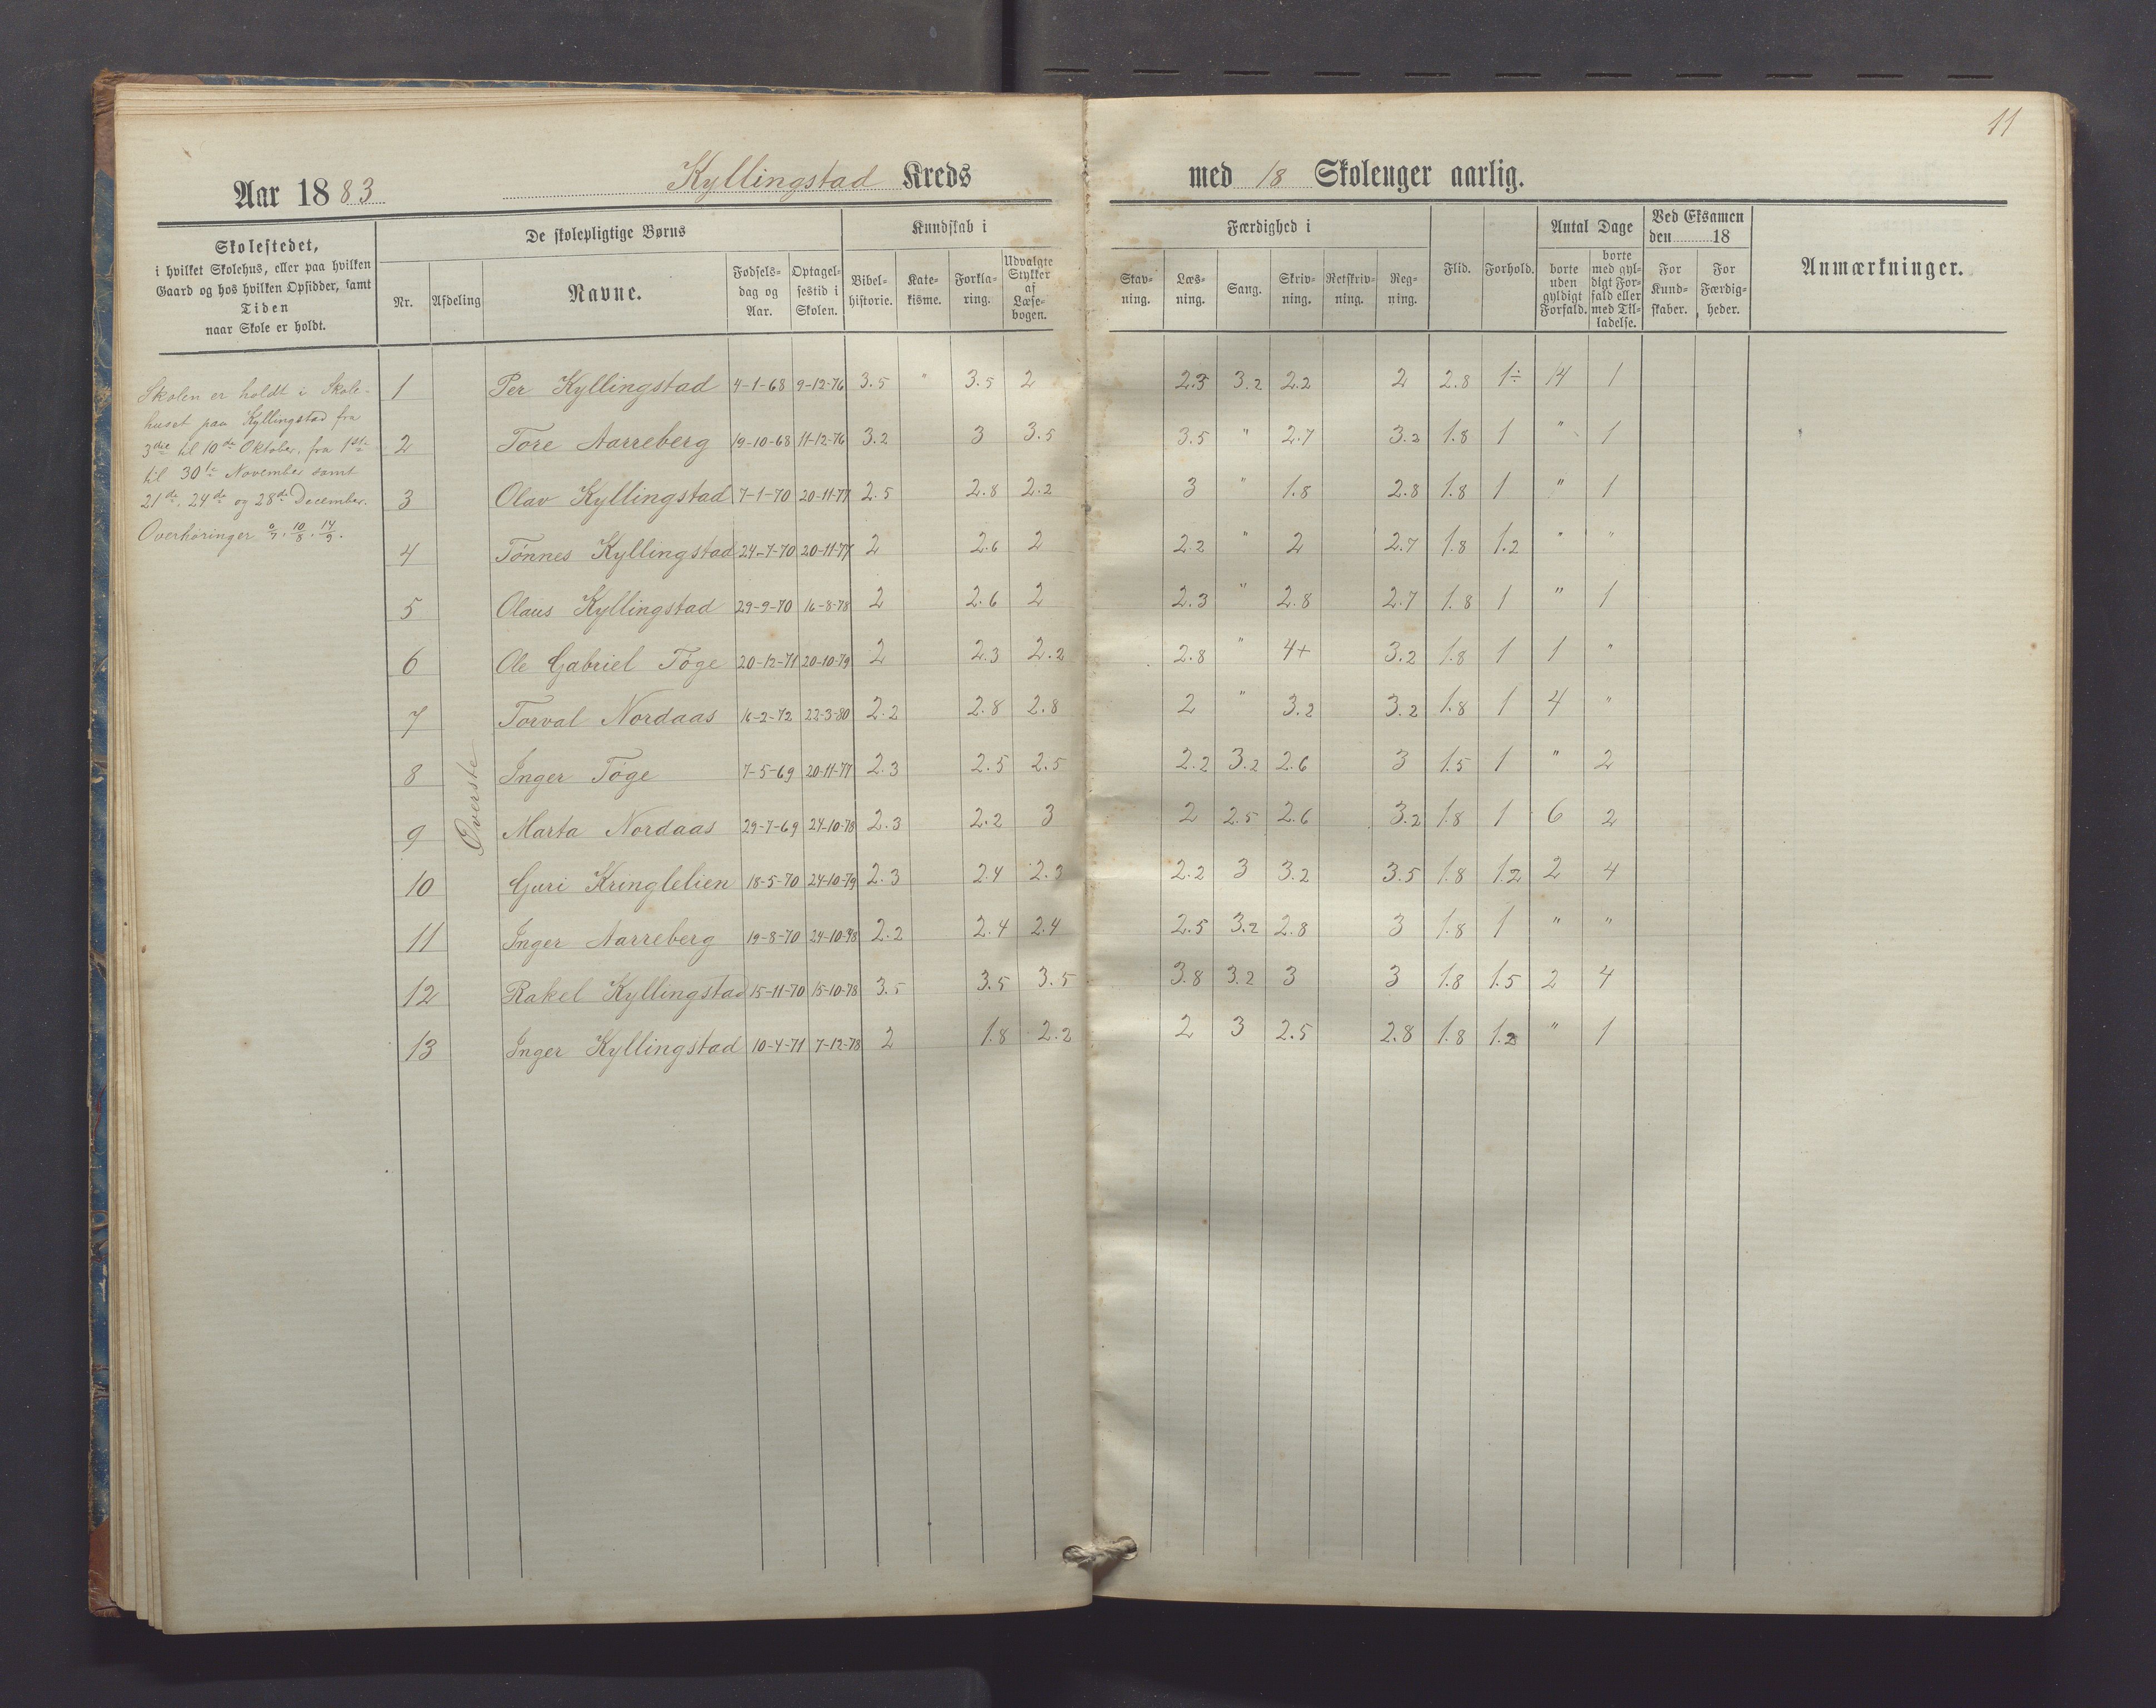 11
Aar 1883 Kyllingstad Kreds med 18 Skoleuger aarlig.
Skolestedet,
i hvilket Skolehus, eller paa hvilken
Gaard og hos hvilken Opsidder, samt
Tiden
naar Skole er holdt.
De skolepligtige Børns
Nr. Afdeling Navne. Fødsels-dag og Aar. Optagel-sestid i Skolen.
Kundskab i
Bibel-historie. Kate-kisme. Forkla-ring. Udvalgte Stykker af Læse-bogen.
Færdighed i
Stav-ning. Læs-ning. Sang. Skriv-ning. Retskriv-ning. Reg-ning.
Flid. Forhold.
Antal Dage
borte uden gyldigt Forfald. borte med gyl-digt For-fald eller med Til-ladelse.
Ved Eksamen
den 18
For Kund-skaber. For Færdig-heder.
Anmærkninger.
Skolen er holdt i Skole-
huset paa Kyllingstad fra
3die til 10de Oktober, fra 1ste
til 30te November samt
21de, 24de og 28de December.
Overhøringer 10/8. 14/9.
Øverste
1 Per Kyllingstad 4-1-68 9-12-76 3.5 " 3.5 2 2.3 3.2 2.2 2 2.8 1÷ 14 1
2 Tore Aarreberg 19-10-68 11-12-76 3.2 3 3.5 3.5 " 2.7 3.2 1.8 1 " 1
3 Olav Kyllingstad 7-1-70 20-11-77 2.5 2.8 2.2 3 " 1.8 2.8 1.8 1 " 1
4 Tønnes Kyllingstad 24-7-70 20-11-77 2 2.6 2 2.2 " 2 2.7 1.8 1.2 " "
5 Olaus Kyllingstad 29-9-70 16-8-78 2 2.6 2 2.3 " 2.8 2.7 1.8 1 " 1
6 Ole Gabriel Tøge 20-12-71 20-10-79 2 2.3 2.2 2.8 " 4+ 3.2 1.8 1 1 "
7 Torval Nordaas 16-2-72 22-3-80 2.2 2.8 2.8 2 " 3.2 3.2 1.8 1 4 "
8 Inger Tøge 7-5-69 20-11-77 2.3 2.5 2.5 2.2 3.2 2.6 3 1.5 1 " 2
9 Marta Nordaas 29-7-69 24-10-78 2.3 2.2 3 2 2.5 2.6 3.2 1.8 1 6 2
10 Guri Kringlelien 18-5-70 24-10-79 2.3 2.4 2.3 2.2 3 3.2 3.5 1.8 1.2 2 4
11 Inger Aarreberg 19-8-70 24-10-78 2.2 2.4 2.4 2.5 3.2 2.8 3 1.8 1 " "
12 Rakel Kyllingstad 15-11-70 15-10-78 3.5 3.5 3.5 3.8 3.2 3 3 1.8 1.5 2 4
13 Inger Kyllingstad 10-4-71 7-12-78 2 1.8 2.2 2 3 2.5 2.8 1.8 1.2 " 1